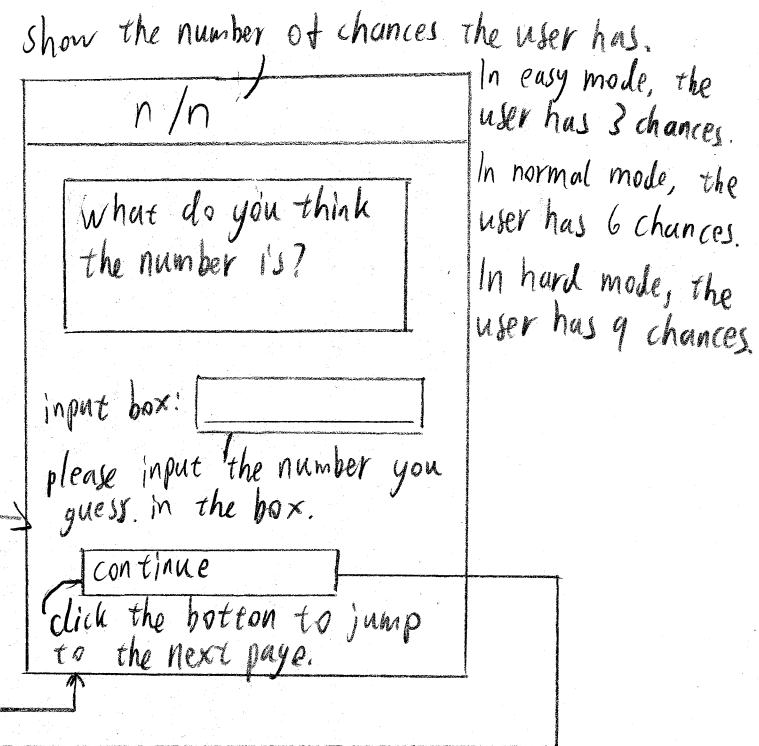 show the number of chances the user has.
n/n
In easy mode, the
user has 3 chances.
In normal mode, the
user has 6 chances.
In hard mode, the
user has 9 chances.
What do you think
the number is?
input box:
please input the number you
guess. in the box.
continue
click the botton to jump
to the next page.